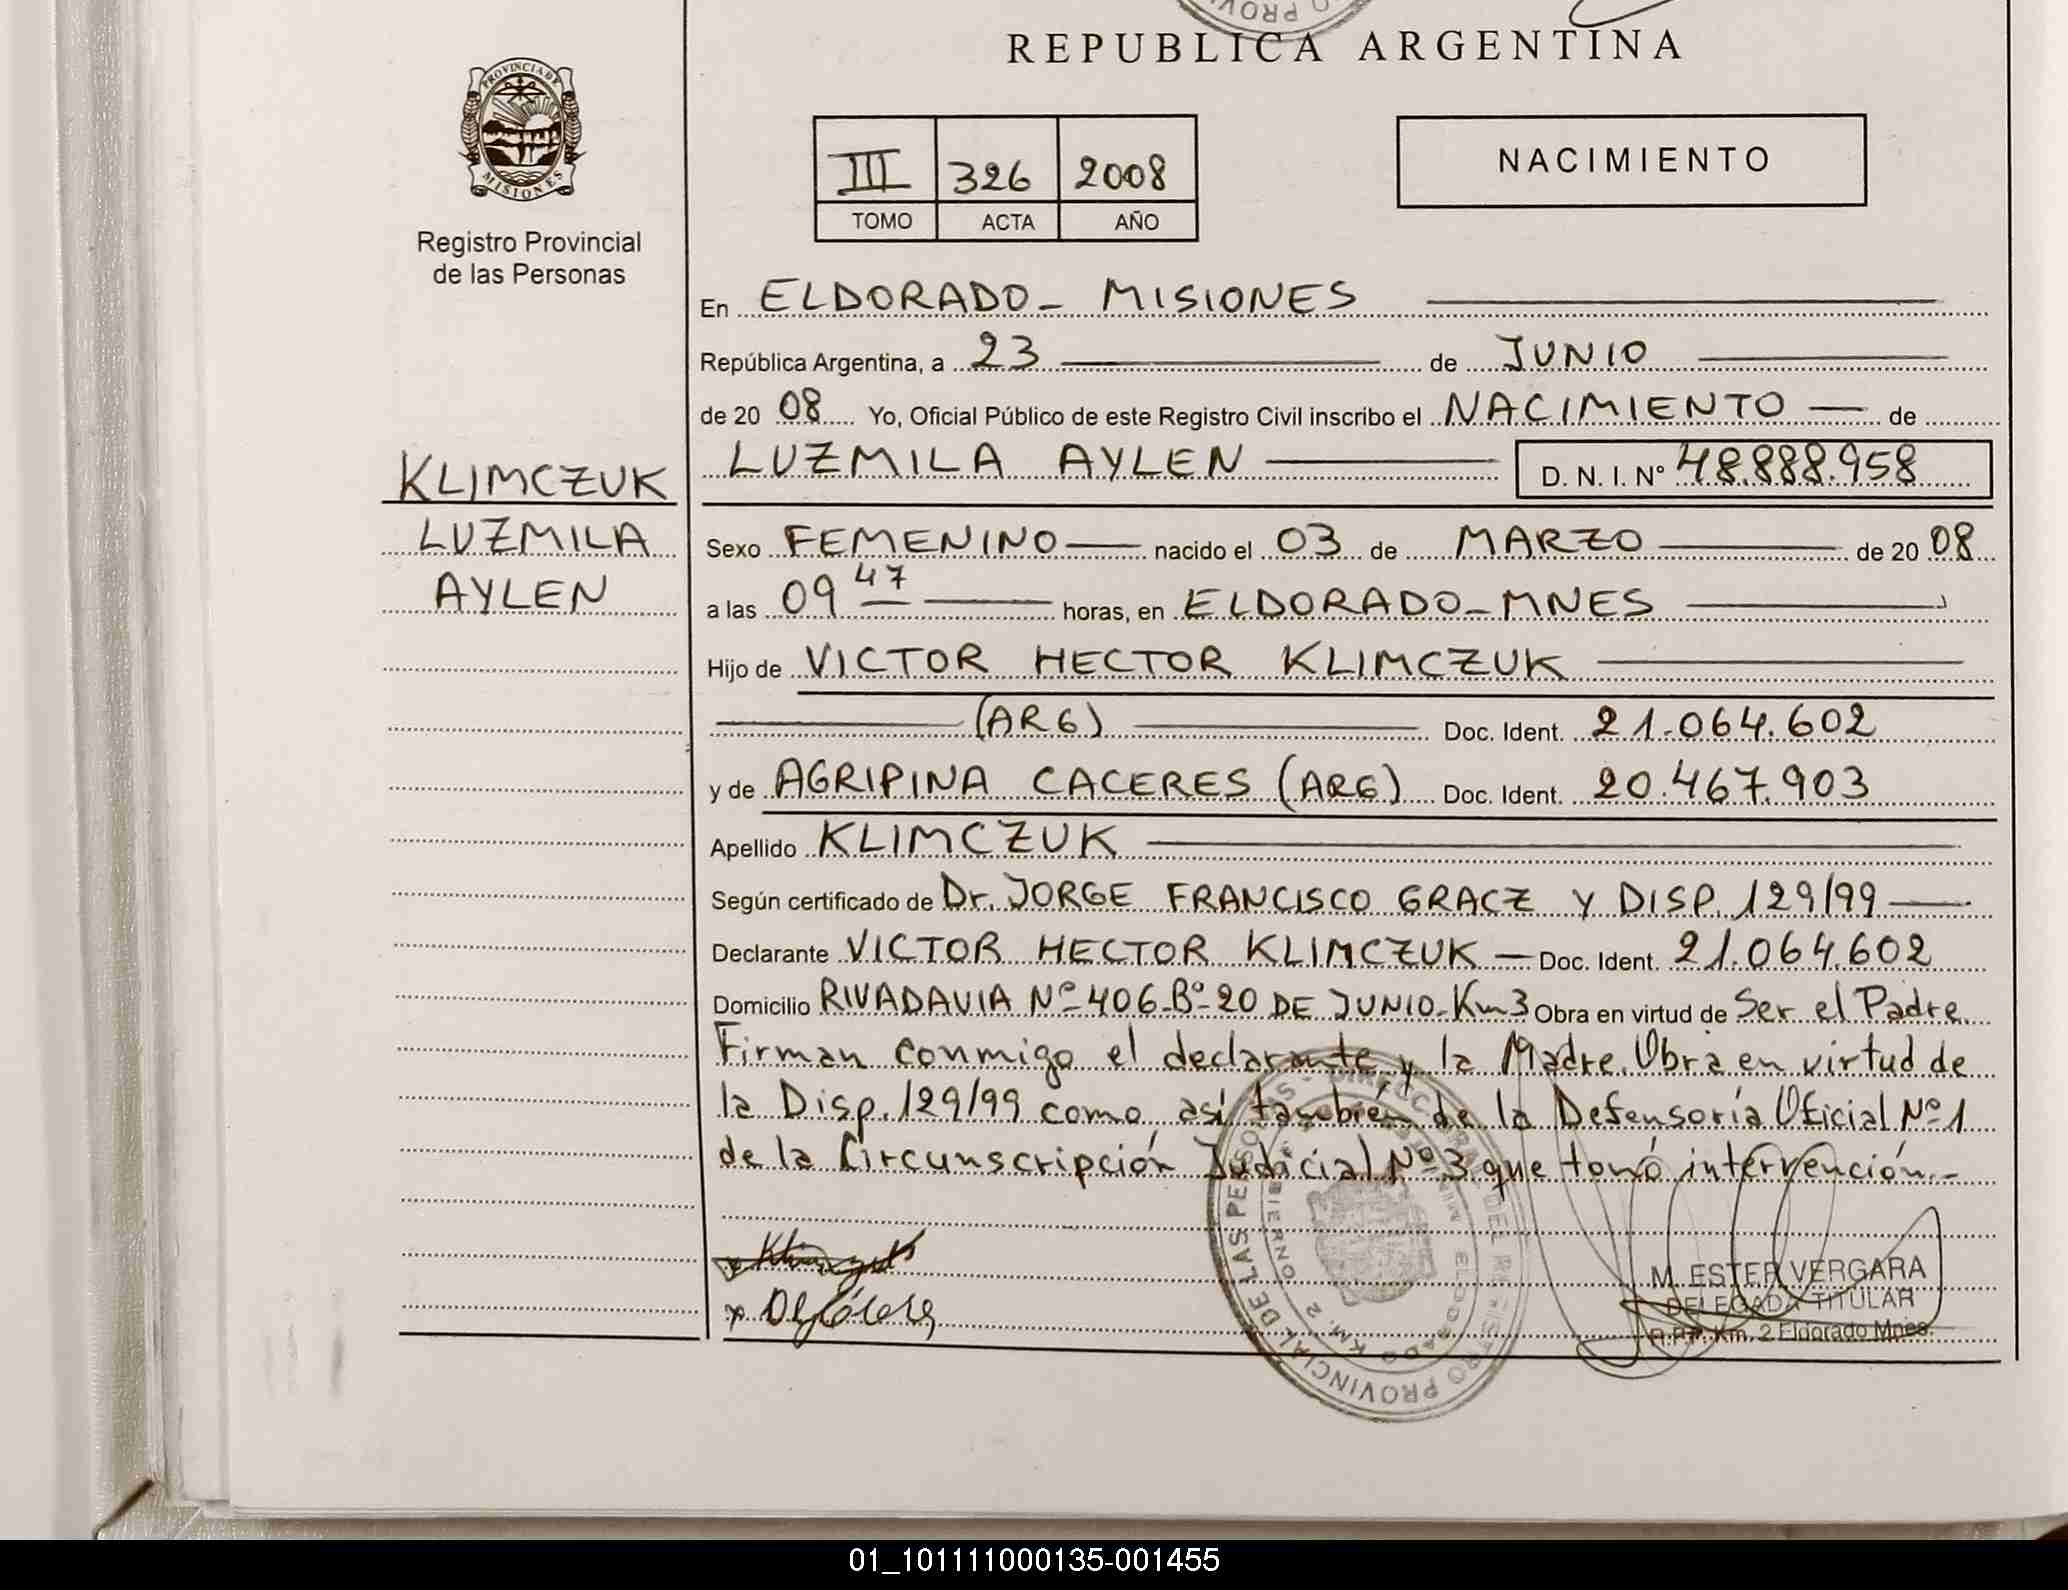 REPUBLICA ARGENTINA
PROVINCIA DE
MISIONES
Registro Provincial
de las Personas
III 326 2008
TOMO ACTA AÑO
NACIMIENTO
En ELDORADO - MISIONES
República Argentina, a 23 de JUNIO
de 20 08 Yo, Oficial Público de este Registro Civil inscribo el NACIMIENTO de
LUZMILA AYLEN D. N. I. Nº 48.888.958
KLIMCZUK
LUZMILA
AYLEN
Sexo FEMENINO nacido el 03 de MARZO de 20 08
a las 09 47 horas, en ELDORADO - MNES
Hijo de VICTOR HECTOR KLIMCZUK
(ARG) Doc. Ident. 21.064.602
y de AGRIPINA CACERES (ARG) Doc. Ident. 20.467.903
Apellido KLIMCZUK
Según certificado de Dr. JORGE FRANCISCO GRACZ Y DISP. 129/99
Declarante VICTOR HECTOR KLIMCZUK Doc. Ident. 21.064.602
Domicilio RIVADAVIA Nº 406-Bº-20 DE JUNIO-Km3 Obra en virtud de Ser el Padre.
Firman conmigo el declarante y la Madre. Obra en virtud de
la Disp. 129/99 como así también de la Defensoría Oficial Nº 1
de la Circunscripción Judicial Nº 3 que tomó intervención.-
M. ESTER VERGARA
DELEGADA TITULAR
R.P.P. Km. 2 Eldorado Mnes.
01_101111000135-001455